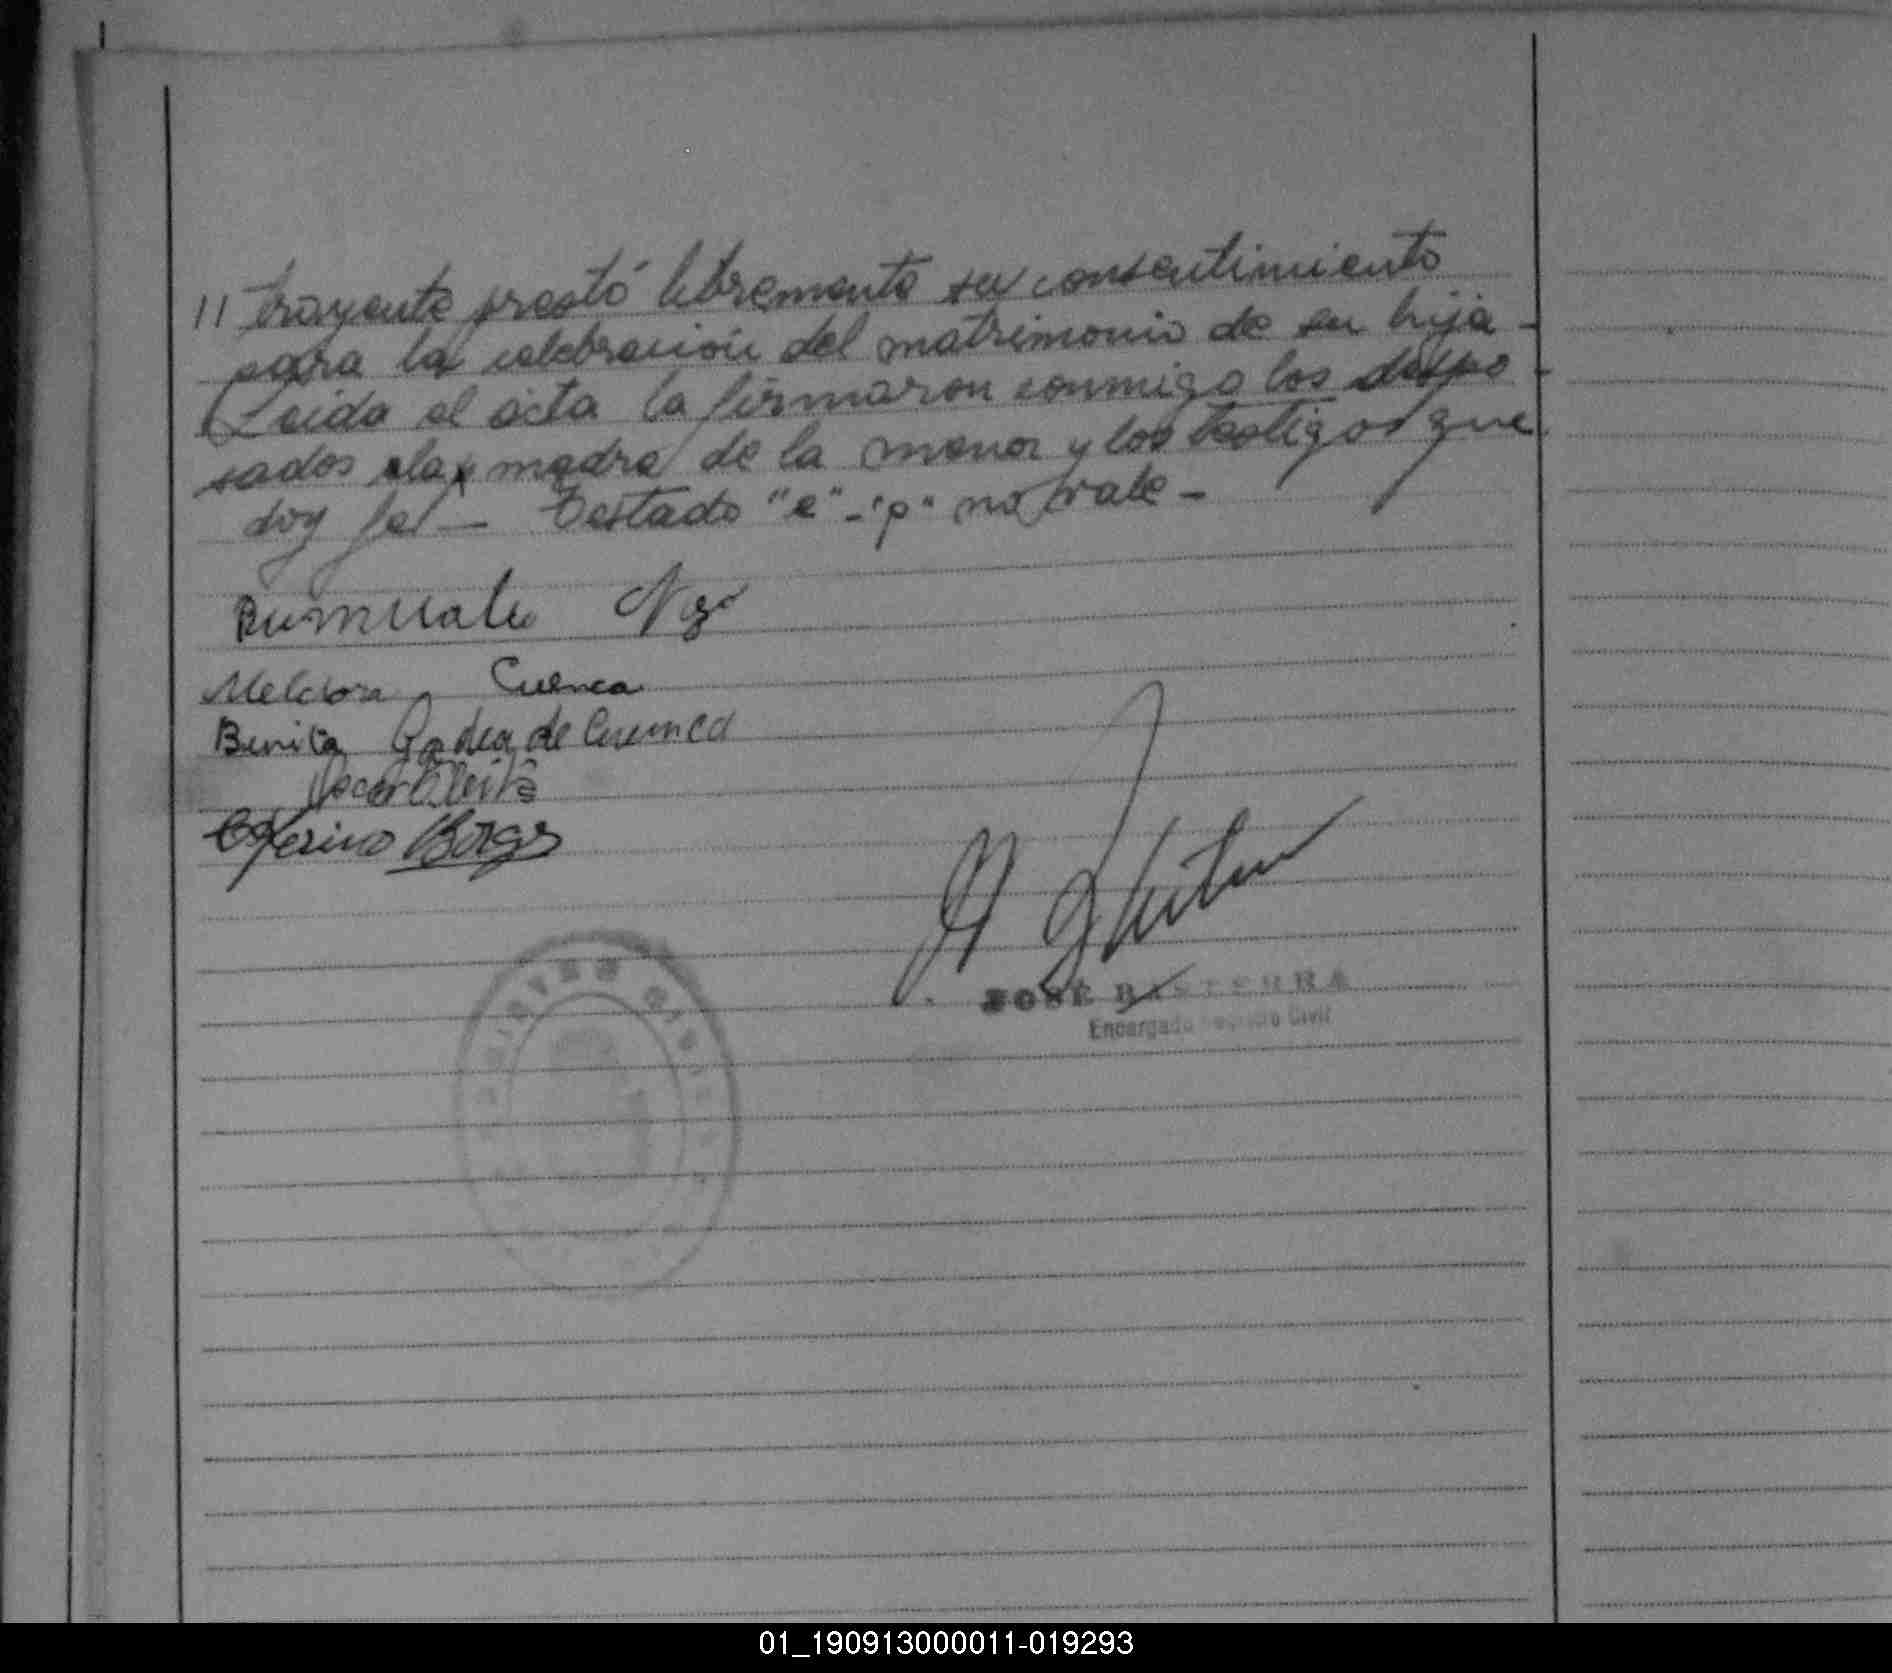 11 trayente prestó libremente su consentimiento
para la celebración del matrimonio de su hija -
Leida el acta la firmaron conmigo los despo -
sados ela p madre de la menor y los testigos que
doy fe - Testado "e" - "p" no vale -
Rumualdo
Melchora Cuenca
Benita Godea de Cuenca
Oscar
Ceferino Borges
JOSÉ BASTERRA
Encargado Registro Civil
01_190913000011-019293